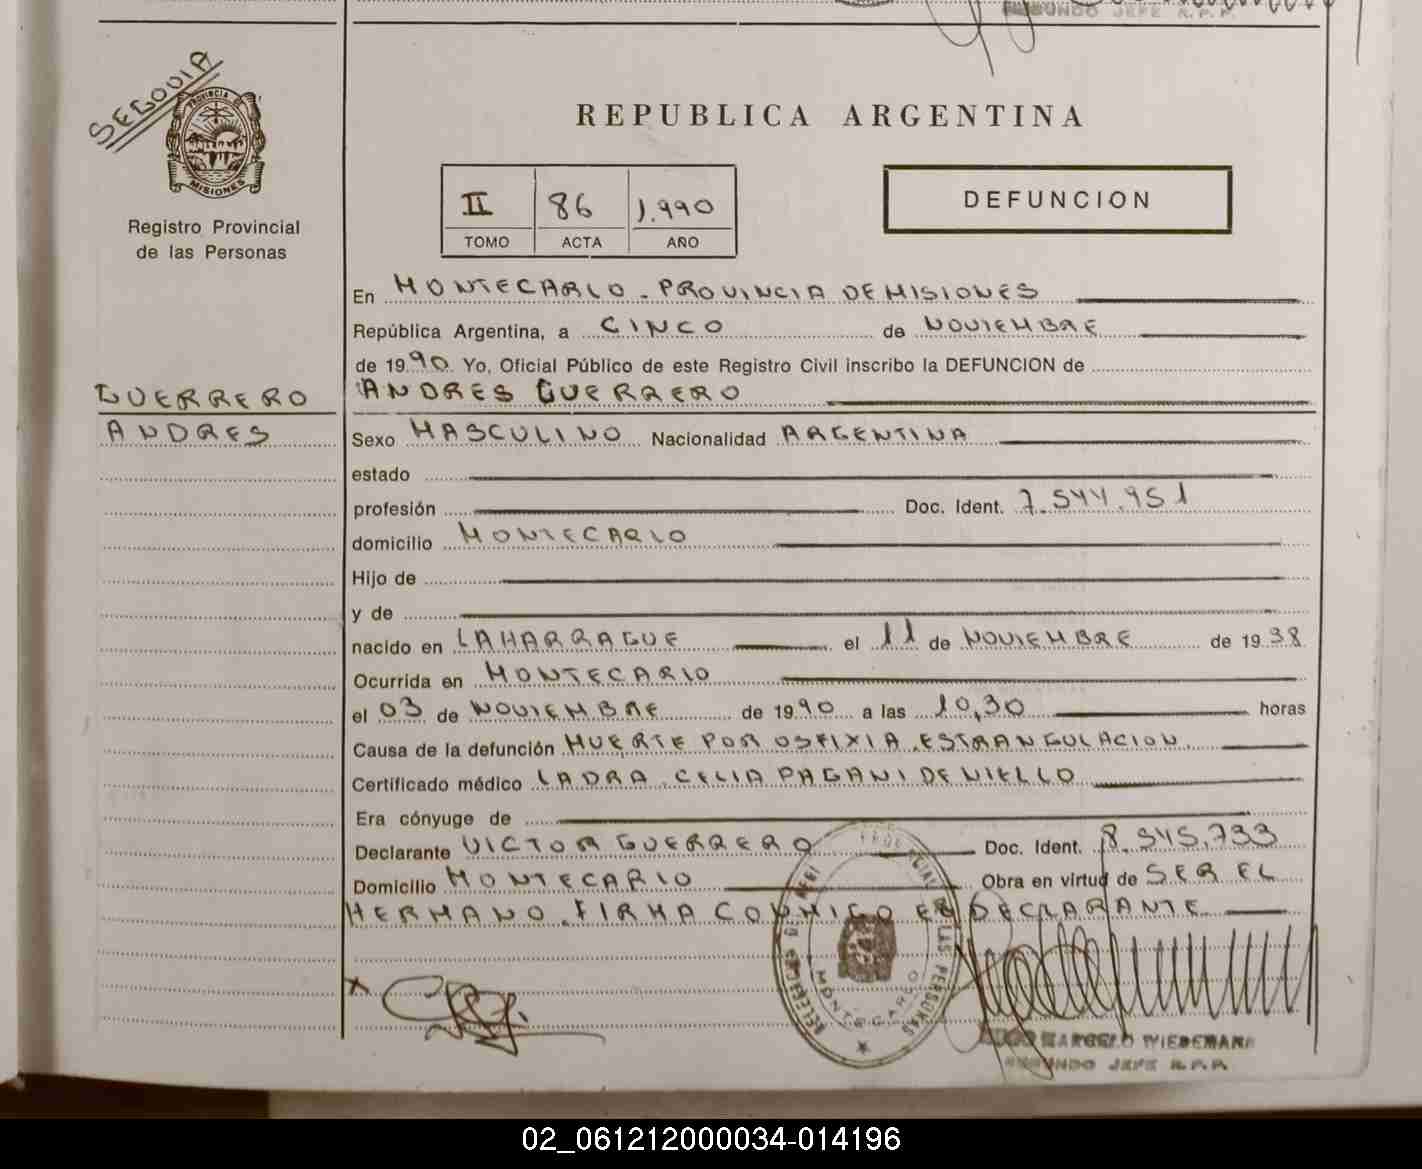 SEGOVIA
PROVINCIA
MISIONES
Registro Provincial
de las Personas
GUERRERO
ANDRES
REPUBLICA ARGENTINA
II 86 1.990
TOMO ACTA AÑO
DEFUNCION
En MONTECARLO - PROVINCIA DE MISIONES
República Argentina, a CINCO de NOVIEMBRE
de 1990. Yo, Oficial Público de este Registro Civil inscribo la DEFUNCION de
ANDRES GUERRERO
Sexo MASCULINO Nacionalidad ARGENTINA
estado
profesión Doc. Ident. 7.544.951
domicilio MONTECARLO
Hijo de
y de
nacido en LAHARRAGUE el 11 de NOVIEMBRE de 1938
Ocurrida en MONTECARLO
el 03 de NOVIEMBRE de 1990 a las 10,30 horas
Causa de la defunción MUERTE POR OSFIXIA. ESTRANGULACION.
Certificado médico LA DRA. CELIA PAGANI DE NIELLO
Era cónyuge de
Declarante VICTOR GUERRERO Doc. Ident. 8.545.733
Domicilio MONTECARLO Obra en virtud de SER EL
HERMANO. FIRMA CONMIGO EL DECLARANTE
DE LAS PERSONAS
MONTECARLO
MARCELO WIEDEMANN
SEGUNDO JEFE R.P.P.
02_061212000034-014196